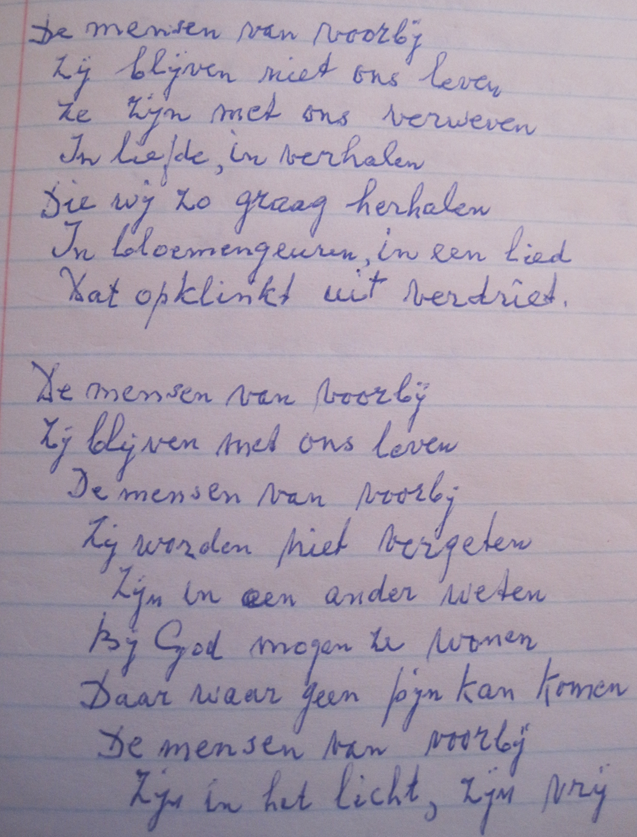 De mensen van voorbij
Zij blijven met ons leven
Ze zijn met ons verweven
In liefde, in verhalen
Die wij zo graag herhalen
In bloemengeuren, in een lied
Dat opklinkt uit verdriet.
De mensen van voorbij
Zij blijven met ons leven
De mensen van voorbij
Zij worden niet vergeten
Zijn in een ander weten
Bij God mogen ze wonen
Daar waar geen pijn kan komen
De mensen van voorbij
Zijn in het licht, zijn vrij